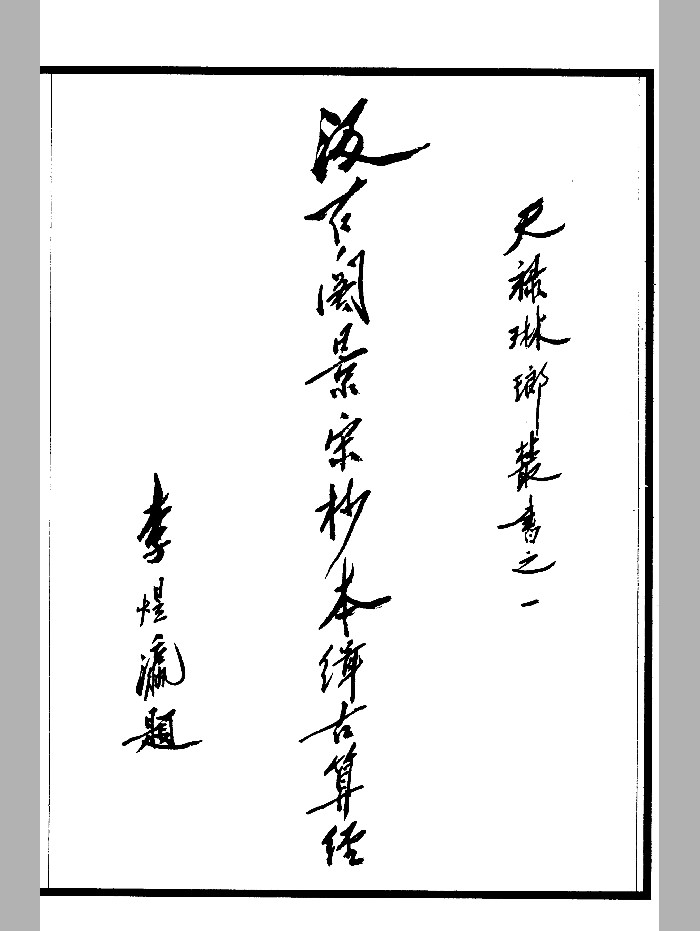 天祿琳瑯叢書之一
汲古閣景宋抄本緝古算經
李煜瀛題